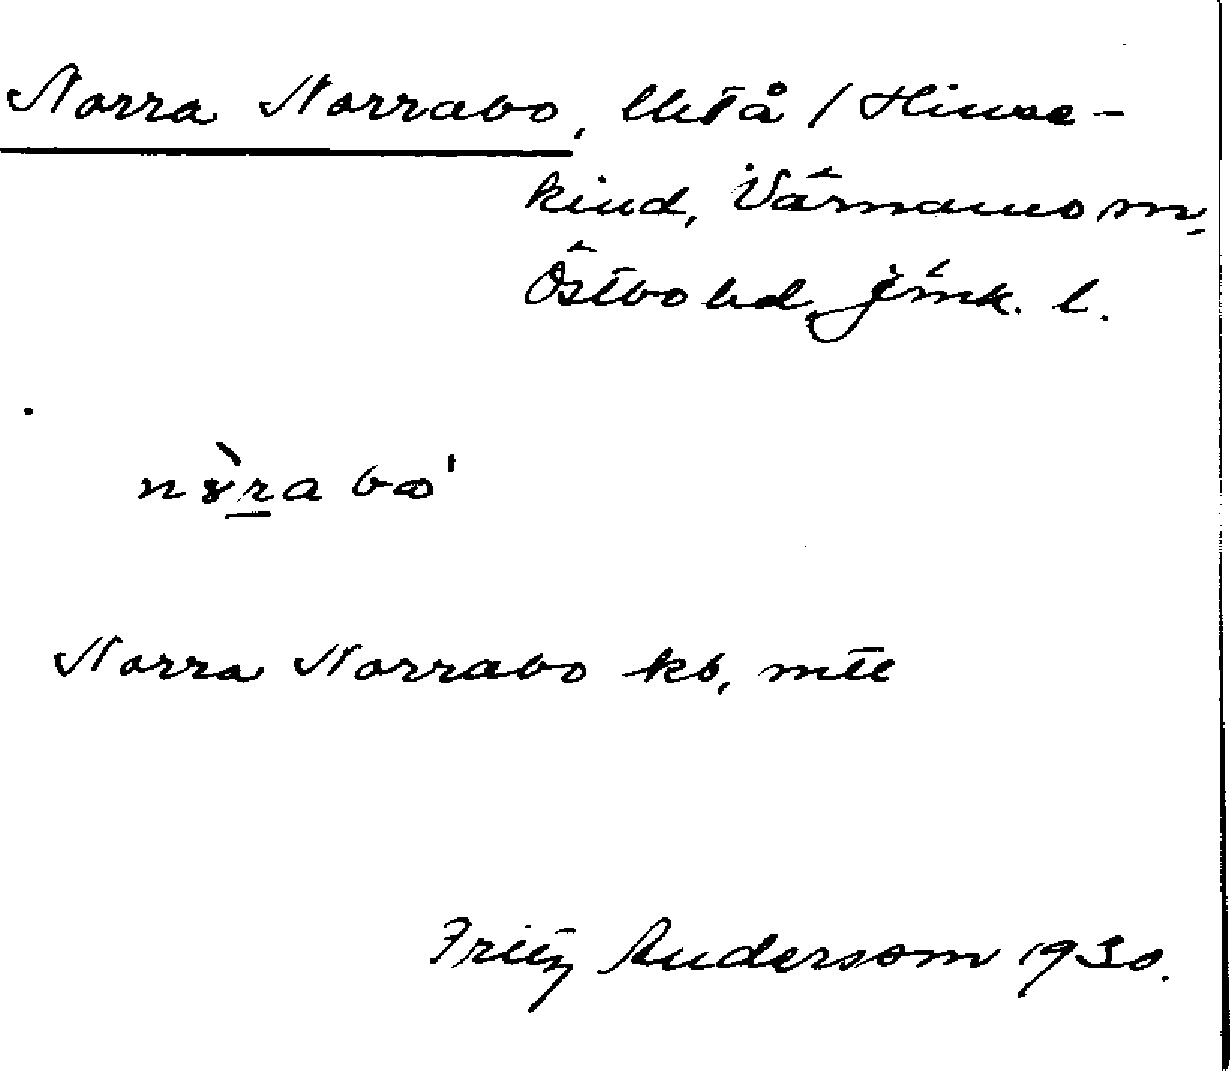 Norra Norrabo, Uetå / Hinse-
kind, Värnamo sn,
Östbo hd, Jönk. l.
nỳra bo'
Norra Norrabo kb, mtl
Fritz Andersson 1930.